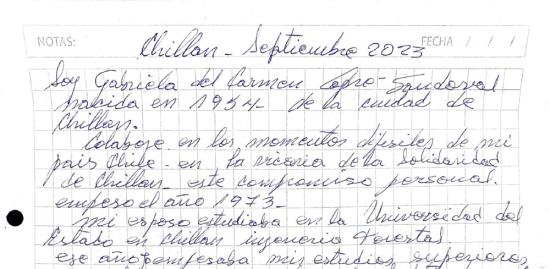 NOTAS:
Chillan - Septiembre 2023
FECHA / / /
Soy Gabriela del Carmen Sandoval
nacida en 1954 - de la ciudad de
Chillan.
Colabore en los momentos dificiles de mi
pais Chile - en la vicaria de la Solidaridad
de Chillan - este compromiso personal.
empeso el año 1973 -
mi esposo estudiaba en la Universidad del
Estado en Chillan ingeneria Forestal
ese año empesaba mis estudios superiores